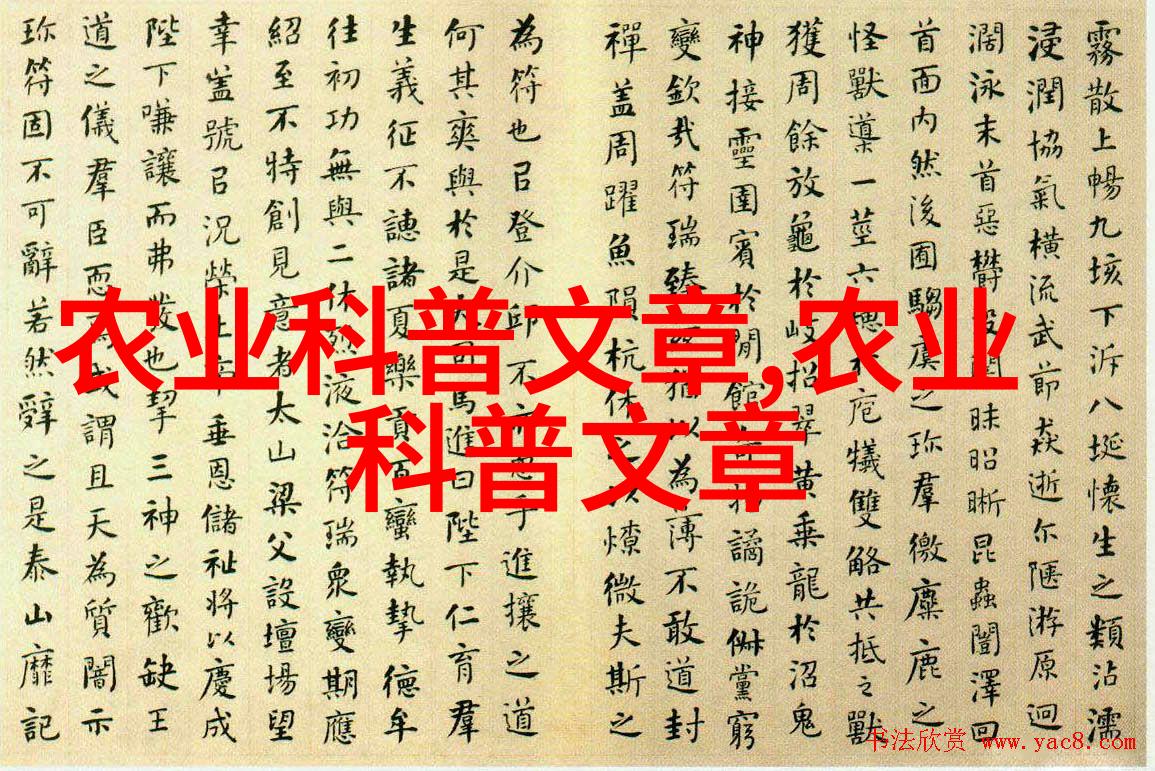 霧散上暢九垓下泝八埏懷生之類沾濡
浸潤協氣橫流武節猋逝尓陿游原迥
濶泳末首惡欝昧昭晰昆蟲闓澤回
首面内然後囿騶虞之珎羣徼麋鹿之
怪獸導一莖六庖犧雙觡共抵之獸
獲周餘放龜於岐招翠黃乗龍於沼鬼
神接靈圉賓於閒館物譎詭俶黨窮
變欽哉符瑞臻猶以為薄不敢道封
禪盖周躍魚隕杭休之以燎微夫斯之
為符也㠯登介邱不亦乎進攘之道
何其爽與於是馬進曰陛下仁育羣
生義征不譓諸夏樂貢百蠻執摯德牟
往初功無與二休烈液洽符瑞衆變期應
紹至不特創見意者太山梁父設壇場望
幸盖號㠯況榮上垂恩儲祉將以慶成
陛下嗛讓而弗發也挈三神之歡缺王
道之儀羣臣恧謂且天為質闇示
珎符固不可辭若然辤之是泰山靡記
农业科普文章,农业
科普文章
书法欣赏 www.yac8.com